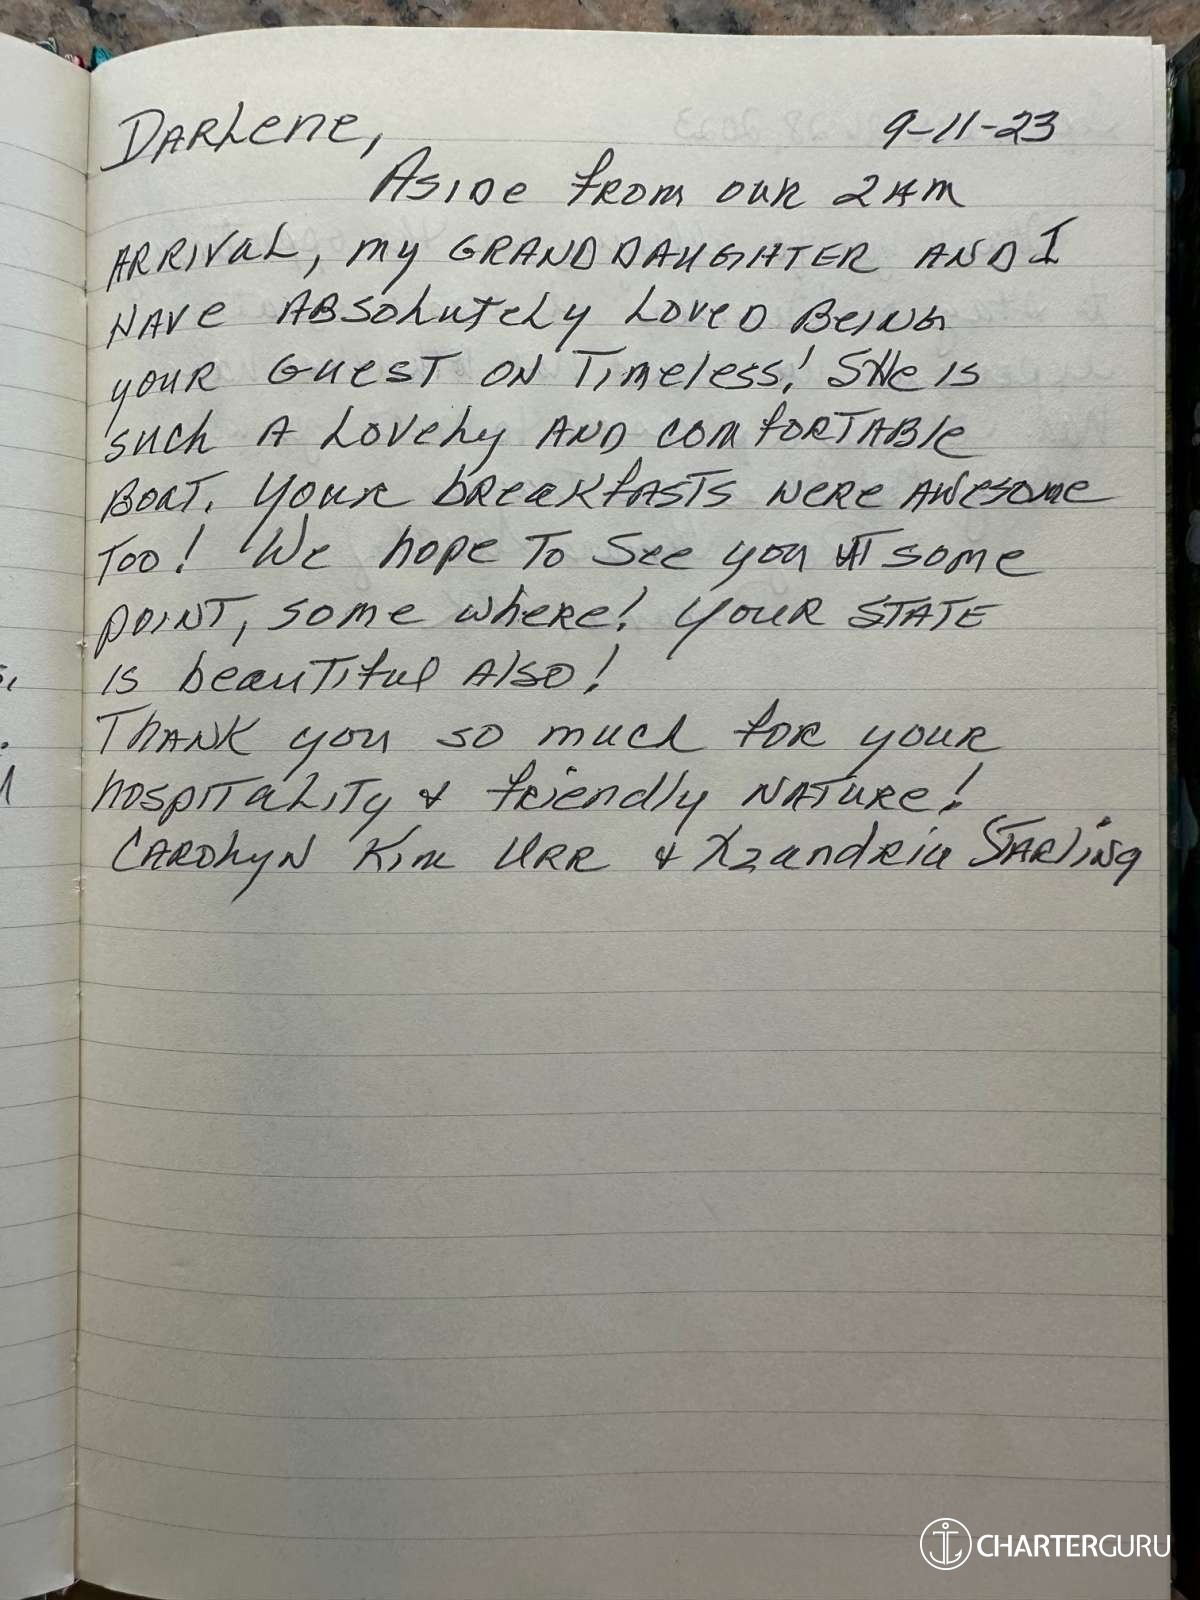 Darlene, 9-11-23
Aside from our 2AM
arrival, my granddaughter and I
have absolutely loved being
your guest on Timeless! She is
such a lovely and comfortable
boat. Your breakfasts were awesome
too! We hope to see you at some
point, some where! Your state
is beautiful also!
Thank you so much for your
hospitality & friendly nature!
Carolyn Kim Urr & Xzandria Starling
CHARTERGURU